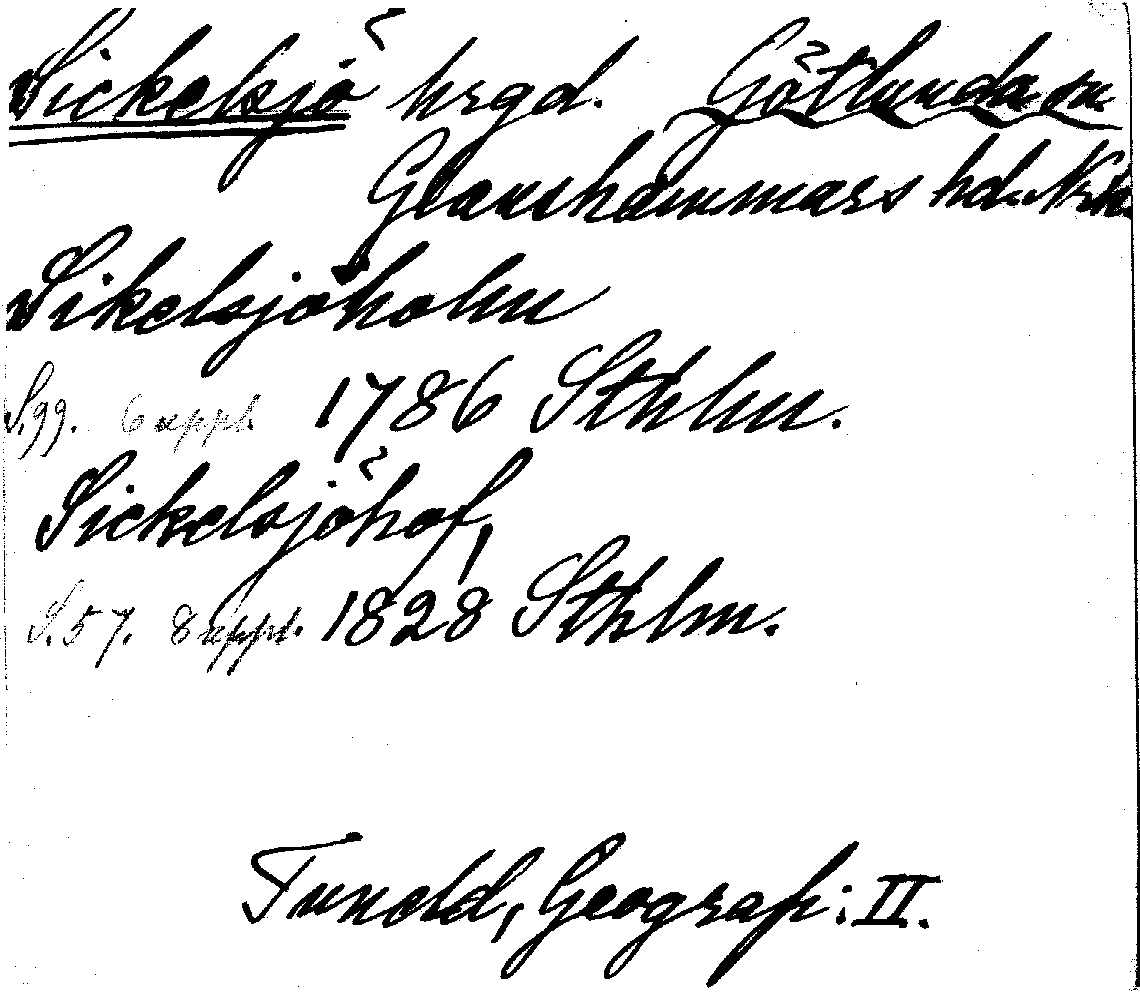 Sickelsjö hrgd. Götlunda sn
Glanshammars hd. Nrk.
Sikelsjöholm
S. 99. 6 uppl. 1786 Sthlm.
Sickelsjöhof,
S. 57. 8 uppl. 1828 Sthlm.
Tuneld, Geograf: II.